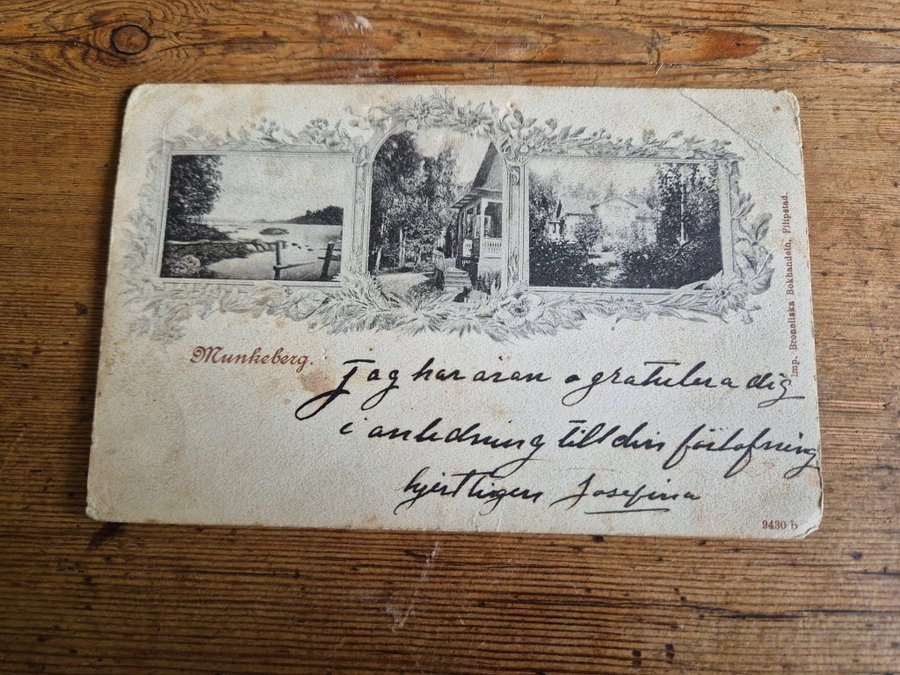 Munkeberg.
Jag har äran o gratulera dig
i anledning till din förlofning
hjertligen Josefina
Imp. Broneliska Bokhandeln, Filipstad.
2430 b